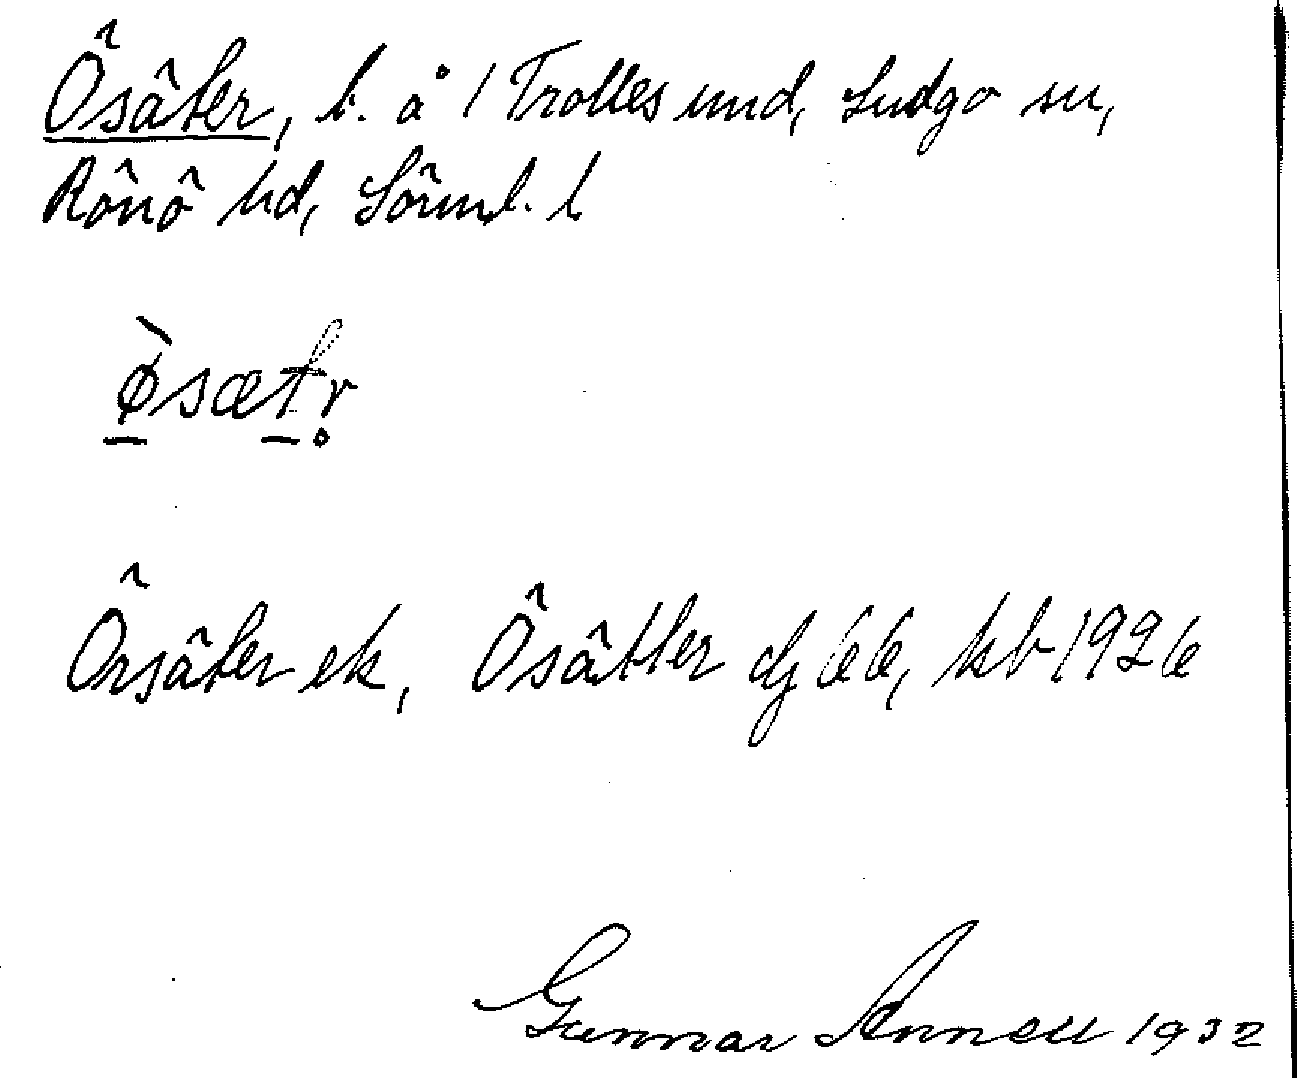 Ösäter, b. å 1 Trollesund, Ludgo sn,
Rönö hd, Sörml. l
ø̀sætr̥
Örsäter ek, Ösätter dj 66, kb 1926
Gunnar Annell 1932